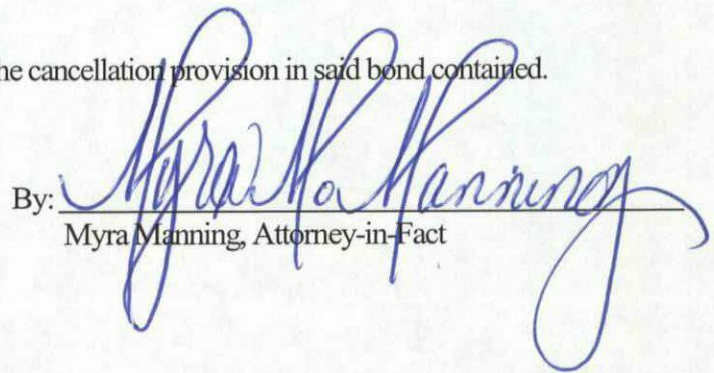 he cancellation provision in said bond contained.
By: Myra M. Manning
Myra Manning, Attorney-in-Fact